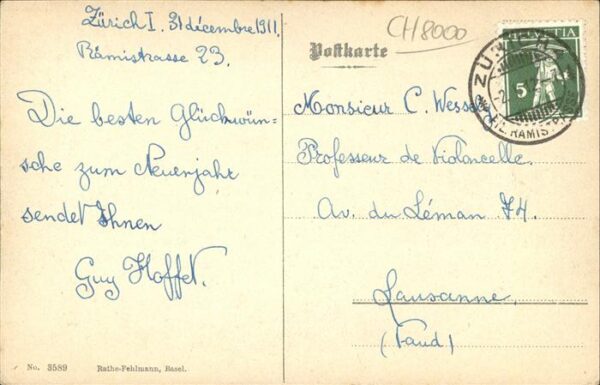 Zürich I. 31 décembre 1911.
Rämistrasse 23.
CH 8000
Postkarte
Die besten Glückwün-
sche zum Neuenjahr
sendet Ihnen
Guy Hoffet.
HELVETIA
5
Monsieur C. Wessel
Professeur de Violoncelle.
Av. du Léman 74.
Lausanne,
(Vaud)
No. 3589 Rathe-Fehlmann, Basel.